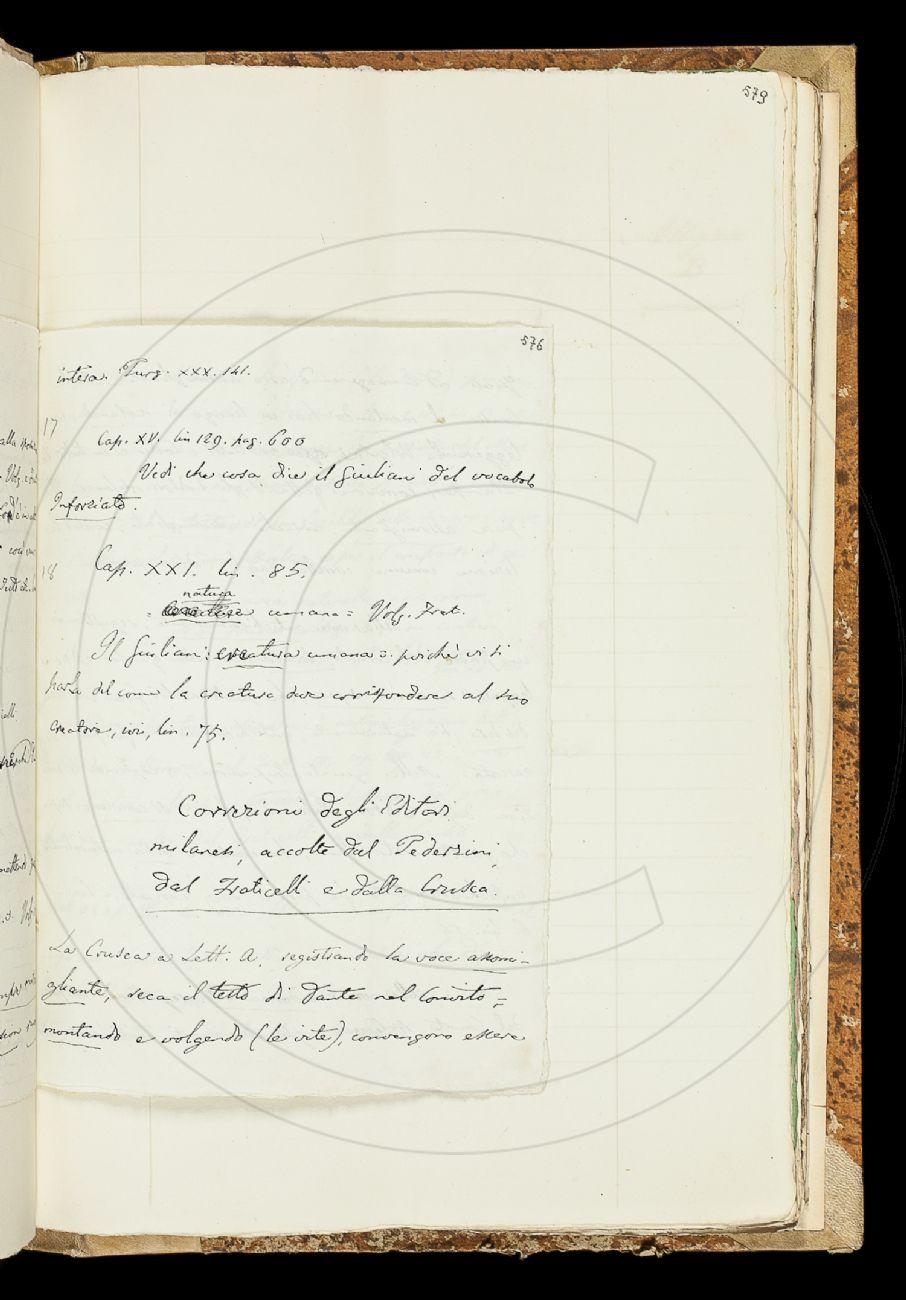 579
576
intera. Purg. XXX. 141.
17
Cap. XV. lin 129. pag. 600
Vedi che cosa dice il Giuliani del vocabolo
Inforziato.
18
Cap. XXI. lin. 85.
natura
= umana = Volg. Frat.
Il Giuliani: creatura umana =: poichè vi si
parla del come la creatura deve corrispondere al suo
creatore, ivi, lin. 75.
Correzioni degli Editori
milanesi, accolte dal Pederzini,
dal Fraticelli e dalla Crusca.
La Crusca a Lett. A, registrando la voce assomi-
gliante, reca il testo di Dante nel Convito =
montando e volgendo (le vite), convengono essere